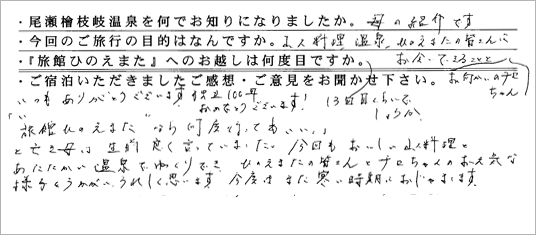 ・尾瀬檜枝岐温泉を何でお知りになりましたか。母の紹介です
・今回のご旅行の目的はなんですか。山人料理、温泉、ひのえまたの皆さんに
お会いできること
・『旅館ひのえまた』へのお越しは何度目ですか。
13回目くらいでしょうか
・ご宿泊いただきましたご感想・ご意見をお聞かせ下さい。
いつもありがとうございます。 100年
おめでとうございます!
「旅館ひのえまたなら何度行ってもいい。」
と亡き母は生前良く言っていました。今回もおいしい山人料理と
あたたかい温泉でゆっくりでき、ひのえまたの皆さんとチロちゃんのお元気な
様子もうかがいうれしく思います。今度はまた寒い時期におじゃまします。